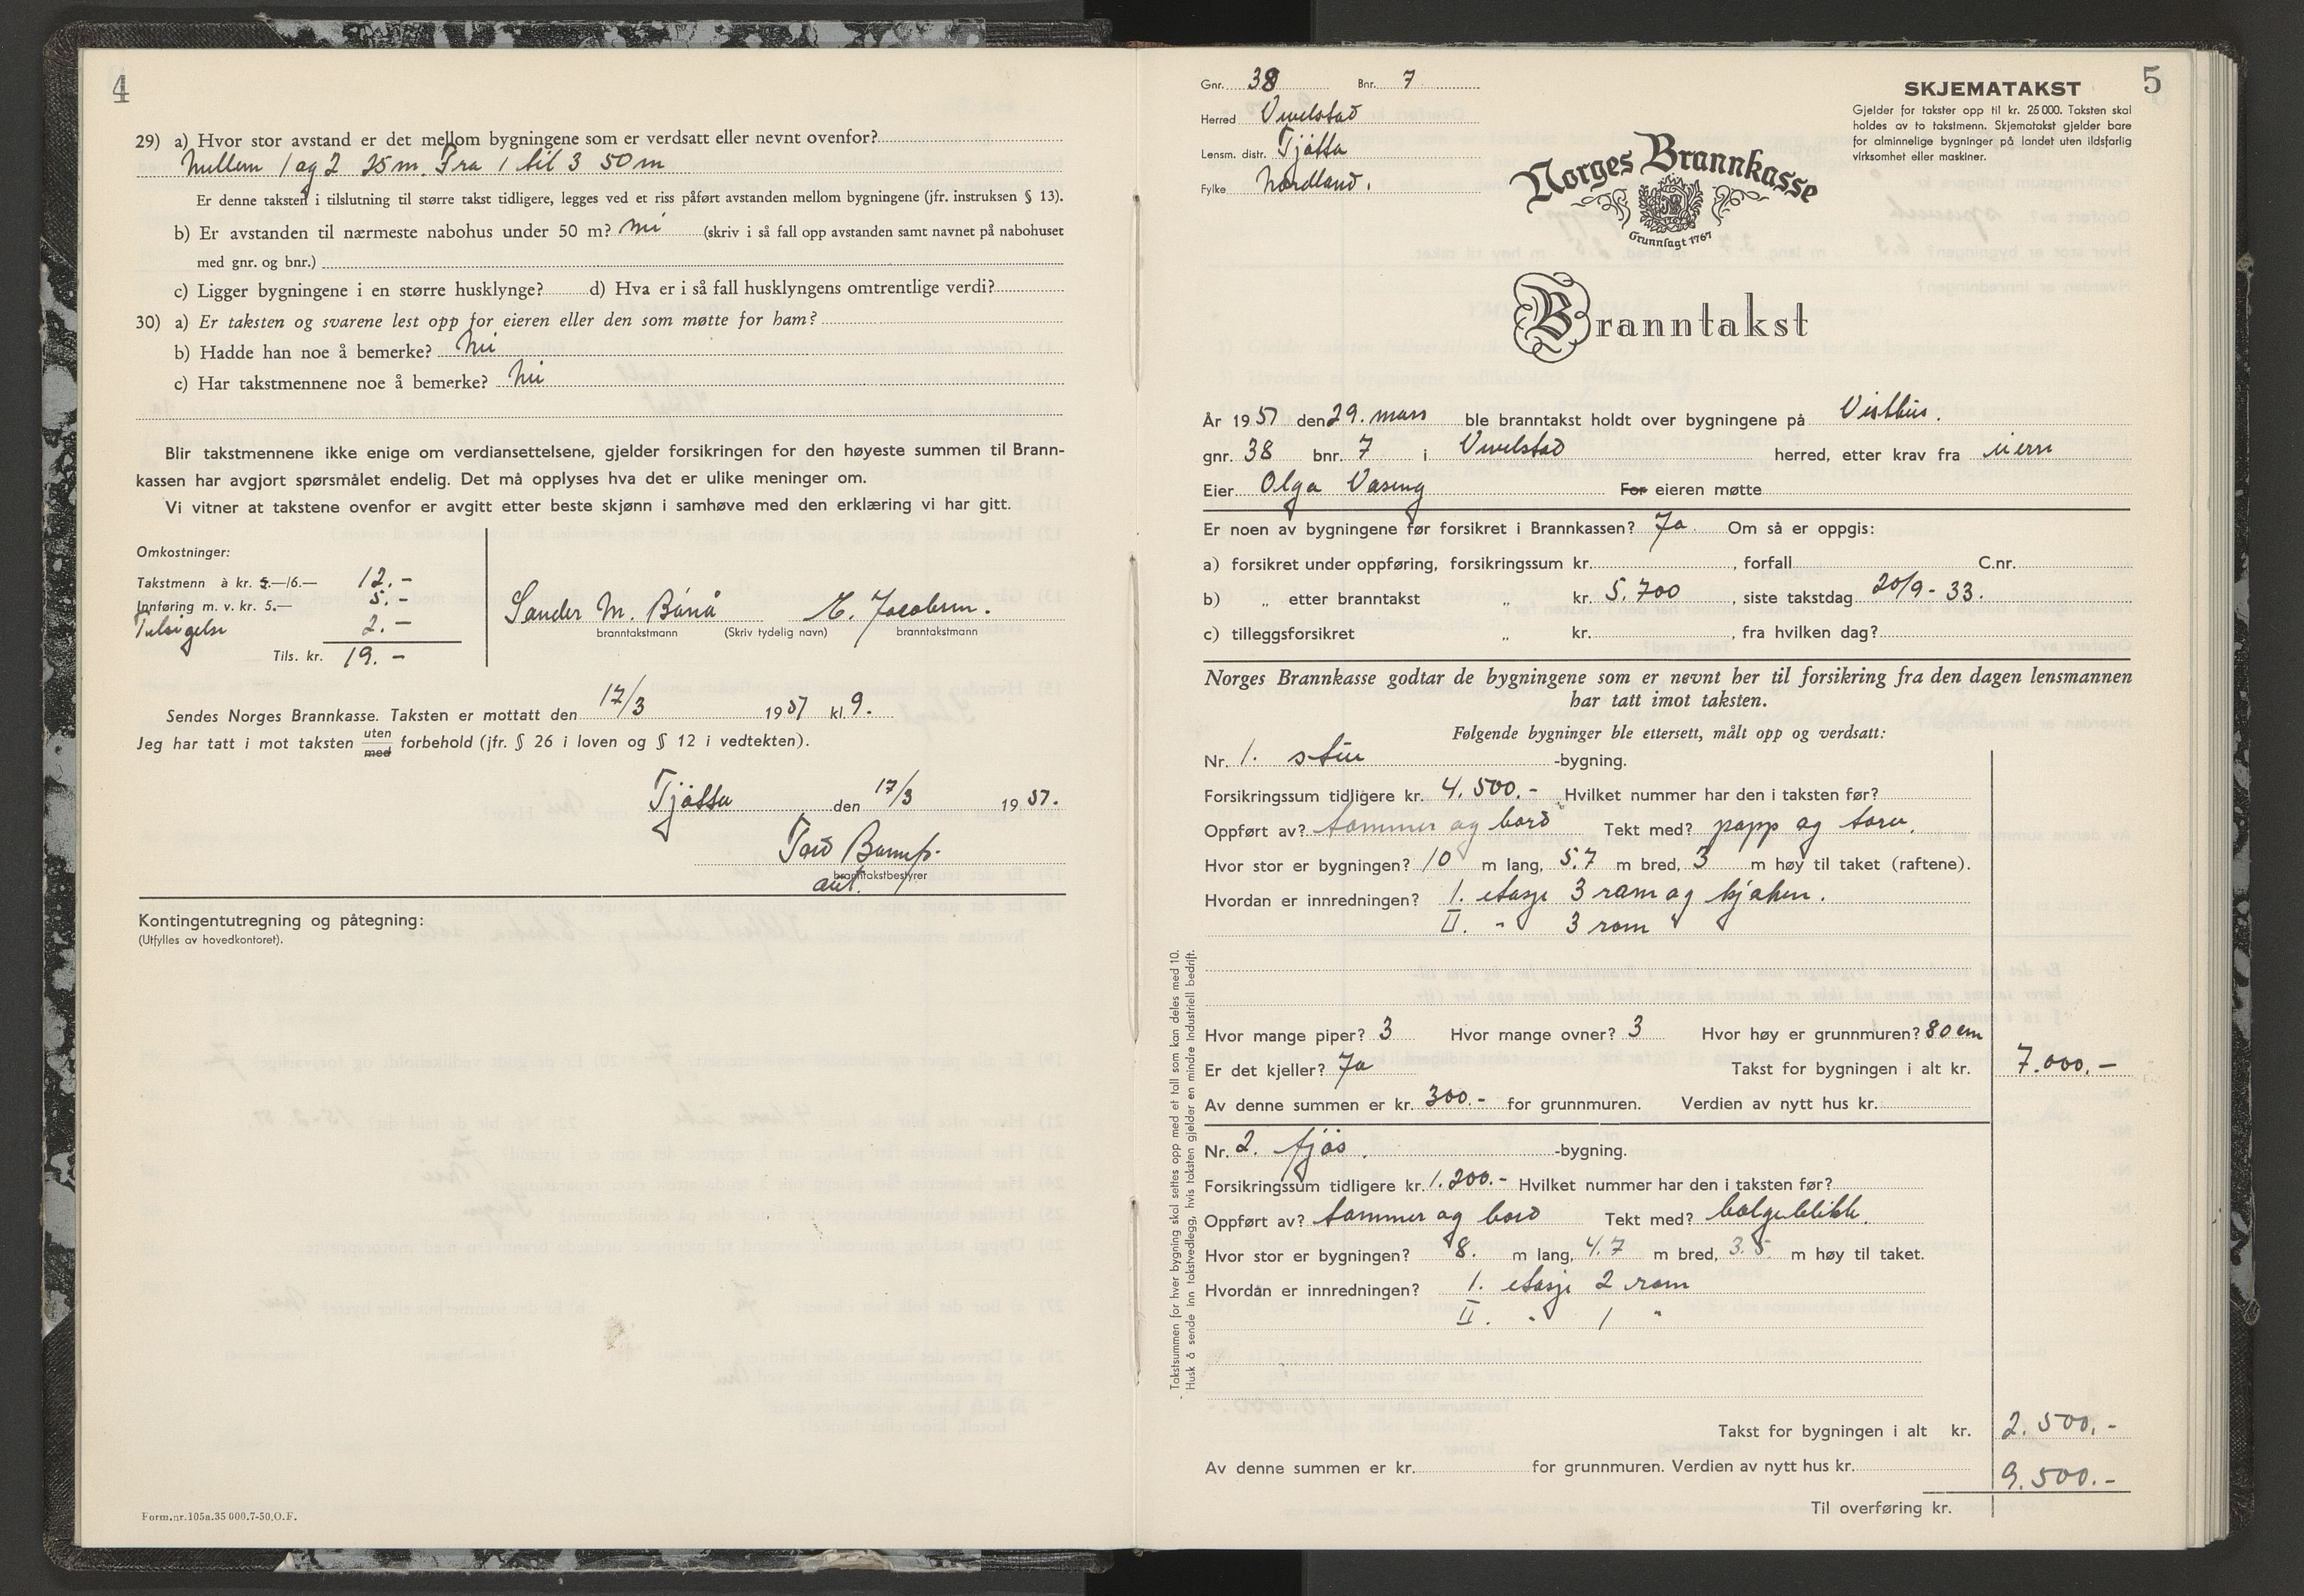 4
29) a) Hvor stor avstand er det mellom bygningene som er verdsatt eller nevnt ovenfor?
Mellem 1 og 2 25 m. Fra 1 til 3 50 m
Er denne taksten i tilslutning til større takst tidligere, legges ved et riss påført avstanden mellom bygningene (jfr. instruksen § 13).
b) Er avstanden til nærmeste nabohus under 50 m? Nei (skriv i så fall opp avstanden samt navnet på nabohuset
med gnr. og bnr.)
c) Ligger bygningene i en større husklynge? d) Hva er i så fall husklyngens omtrentlige verdi?
30) a) Er taksten og svarene lest opp for eieren eller den som møtte for ham?
b) Hadde han noe å bemerke? Nei
c) Har takstmennene noe å bemerke? Nei
Blir takstmennene ikke enige om verdiansettelsene, gjelder forsikringen for den høyeste summen til Brann-
kassen har avgjort spørsmålet endelig. Det må opplyses hva det er ulike meninger om.
Vi vitner at takstene ovenfor er avgitt etter beste skjønn i samhøve med den erklæring vi har gitt.
Omkostninger:
Takstmenn à kr. 5.—/6.— 12.-
Innføring m. v. kr. 5.— 5.-
Tilsigelse 2.-
Tils. kr. 19.-
Sander M. Bånå E. Jacobsen.
branntakstmann (Skriv tydelig navn) branntakstmann
Sendes Norges Brannkasse. Taksten er mottatt den 17/3 1951 kl. 9.
Jeg har tatt i mot taksten uten
med forbehold (jfr. § 26 i loven og § 12 i vedtekten).
Tjøtta den 17/3 1951.
branntakstbestyrer
aut.
Kontingentutregning og påtegning:
(Utfylles av hovedkontoret).
Form.nr.105a.35 000.7-50.O.F.
5
Gnr. 38 Bnr. 7
Herred Vevelstad
Lensm. distr. Tjøtta
Fylke Nordland.
SKJEMATAKST
Gjelder for takster opp til kr. 25 000. Taksten skal
holdes av to takstmenn. Skjematakst gjelder bare
for alminnelige bygninger på landet uten ildsfarlig
virksomhet eller maskiner.
Norges Brannkasse
Grunnlagt 1767
Branntakst
År 1951 den 29. mars ble branntakst holdt over bygningene på Visthus.
gnr. 38 bnr. 7 i Vevelstad herred, etter krav fra eieren
Eier Olga Vaseng For eieren møtte
Er noen av bygningene før forsikret i Brannkassen? Ja Om så er oppgis:
a) forsikret under oppføring, forsikringssum kr. , forfall C.nr.
b) „ etter branntakst „ kr. 5.700 , siste takstdag 20/9-33.
c) tilleggsforsikret „ kr. , fra hvilken dag?
Norges Brannkasse godtar de bygningene som er nevnt her til forsikring fra den dagen lensmannen
har tatt imot taksten.
Følgende bygninger ble ettersett, målt opp og verdsatt:
Nr. 1. stue -bygning.
Forsikringssum tidligere kr. 4.500.- Hvilket nummer har den i taksten før?
Oppført av? tømmer og bord Tekt med? papp og torv.
Hvor stor er bygningen? 10 m lang, 5.7 m bred, 3 m høy til taket (raftene).
Hvordan er innredningen? 1. etasje 3 rom og kjøken.
II. " 3 rom
Hvor mange piper? 3 Hvor mange ovner? 3 Hvor høy er grunnmuren? 80 cm
Er det kjeller? Ja Takst for bygningen i alt kr. 7.000.-
Av denne summen er kr. 300.- for grunnmuren. Verdien av nytt hus kr.
Nr. 2. fjøs. -bygning.
Forsikringssum tidligere kr. 1.200.- Hvilket nummer har den i taksten før?
Oppført av? tømmer og bord Tekt med? bølgeblikk.
Hvor stor er bygningen? 8. m lang, 4.7 m bred, 3.5 m høy til taket.
Hvordan er innredningen? 1. etasje 2 rom
II. " 1 "
Takst for bygningen i alt kr. 2.500.-
Av denne summen er kr. for grunnmuren. Verdien av nytt hus kr.
9.500.-
Til overføring kr.
Takstsummen for hver bygning skal settes opp med et tall som kan deles med 10.
Husk å sende inn takstvedlegg, hvis taksten gjelder en mindre industriell bedrift.